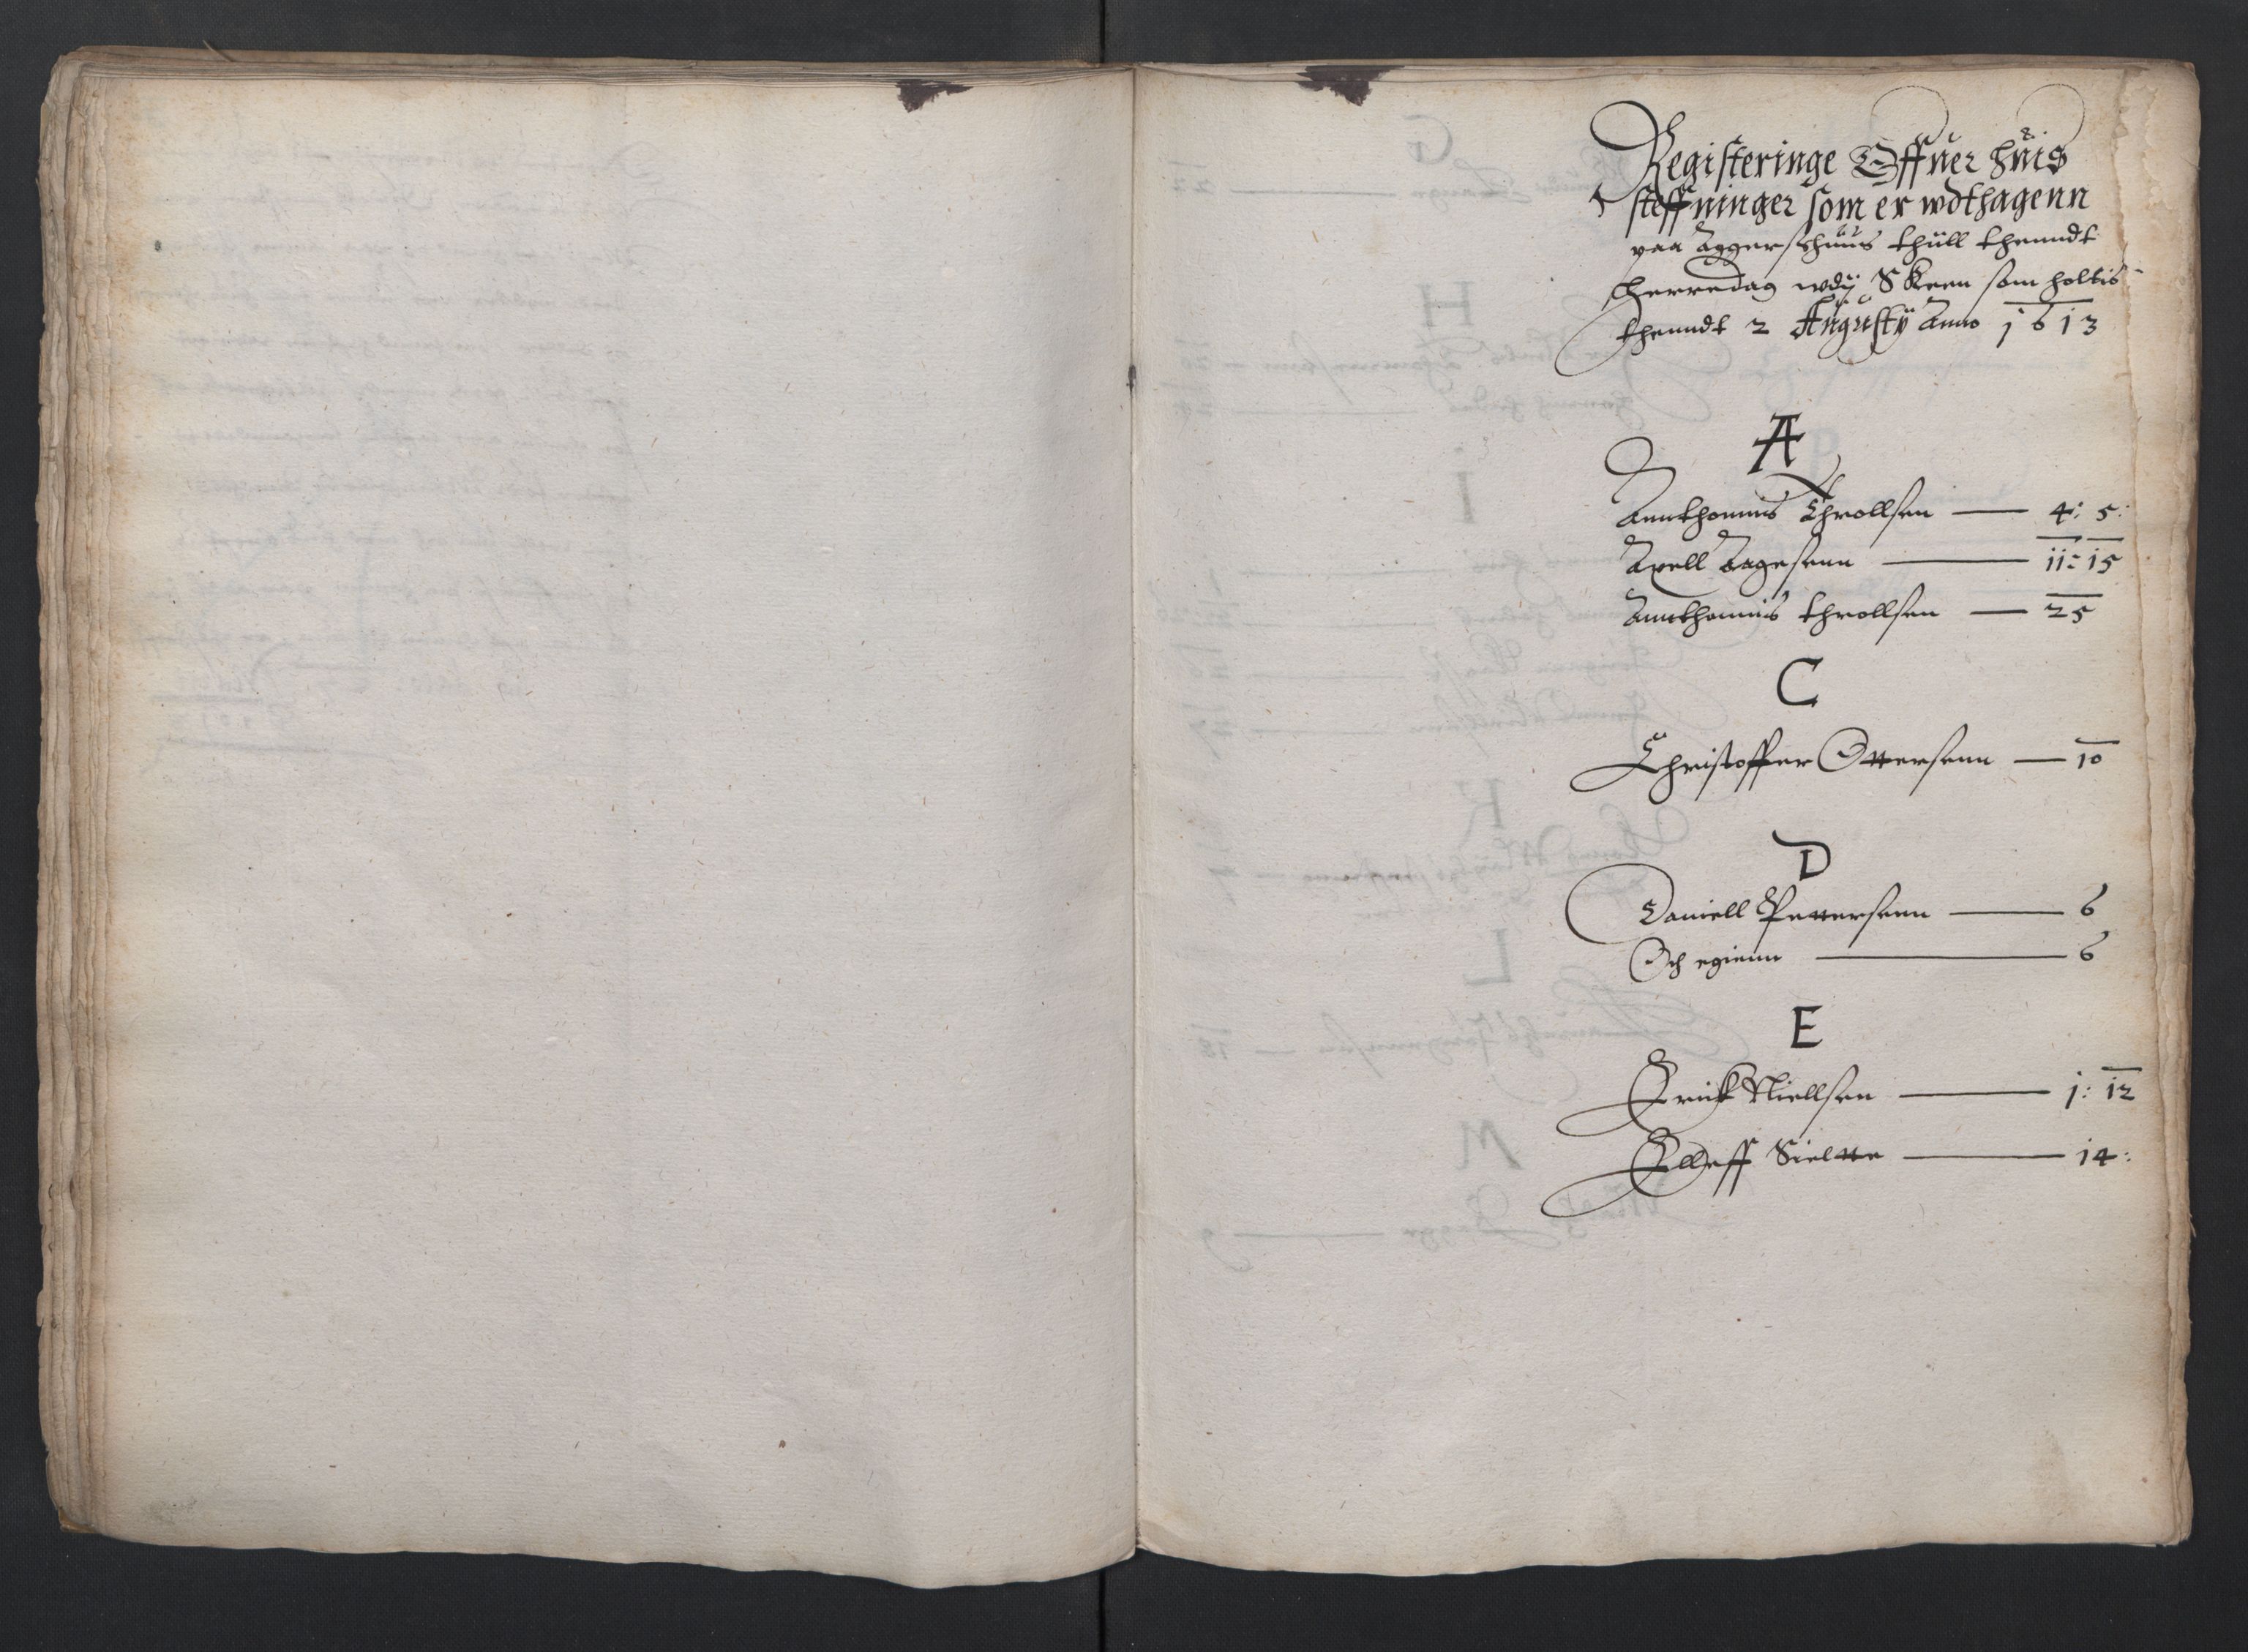 Registeringe Offuer huis
steffninger som er wdthagenn
paa Aggershuus thüll thenndt
herredag wdij Skeen som holtis
thenndt 2 Augustij Anno 1613
A
Annthonnis Throllsen — 4: 5:
Axell Aagesenn — 11: 15
Annthonnis throllsen — 25
C
Christoffer Ottersenn — 10
D
Daniell Pettersenn — 6
Och egienn — 6
E
Erick Niellsen — 1: 12
Elleff Sieltte — 14: